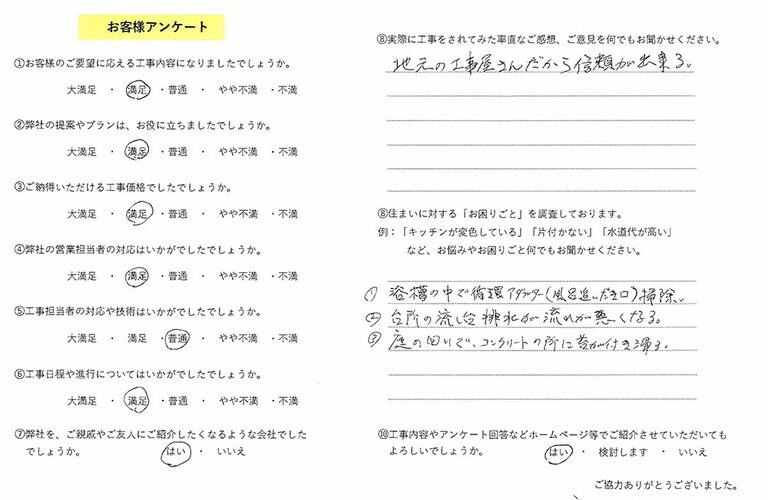 お客様アンケート
①お客様のご要望に応える工事内容になりましたでしょうか。
大満足 ・ 満足 ・普通 ・ やや不満 ・不満
②弊社の提案やプランは、お役に立ちましたでしょうか。
大満足 ・ 満足 ・普通 ・ やや不満 ・不満
③ご納得いただける工事価格でしたでしょうか。
大満足 ・ 満足 ・普通 ・ やや不満 ・不満
④弊社の営業担当者の対応はいかがでしたでしょうか。
大満足 ・ 満足 ・普通 ・ やや不満 ・不満
⑤工事担当者の対応や技術はいかがでしたでしょうか。
大満足 ・ 満足 ・普通 ・ やや不満 ・不満
⑥工事日程や進行についてはいかがでしたでしょうか。
大満足 ・ 満足 ・普通 ・ やや不満 ・不満
⑦弊社を、ご親戚やご友人にご紹介したくなるような会社でした
でしょうか。 はい ・ いいえ
⑧実際に工事をされてみた率直なご感想、ご意見を何でもお聞かせください。
地元の工事屋さんだから信頼が出来る。
⑧住まいに対する「お困りごと」を調査しております。
例：「キッチンが変色している」「片付かない」「水道代が高い」
など、お悩みやお困りごと何でもお聞かせください。
① 浴槽の中で循環アダプター(風呂追いだき口)掃除。
② 台所の流し台排水が流れが悪くなる。
③ 庭の回りで、コンクリートの所に苔が付き滑る。
⑩工事内容やアンケート回答などホームページ等でご紹介させていただいても
よろしいでしょうか。 はい ・ 検討します ・ いいえ
ご協力ありがとうございました。